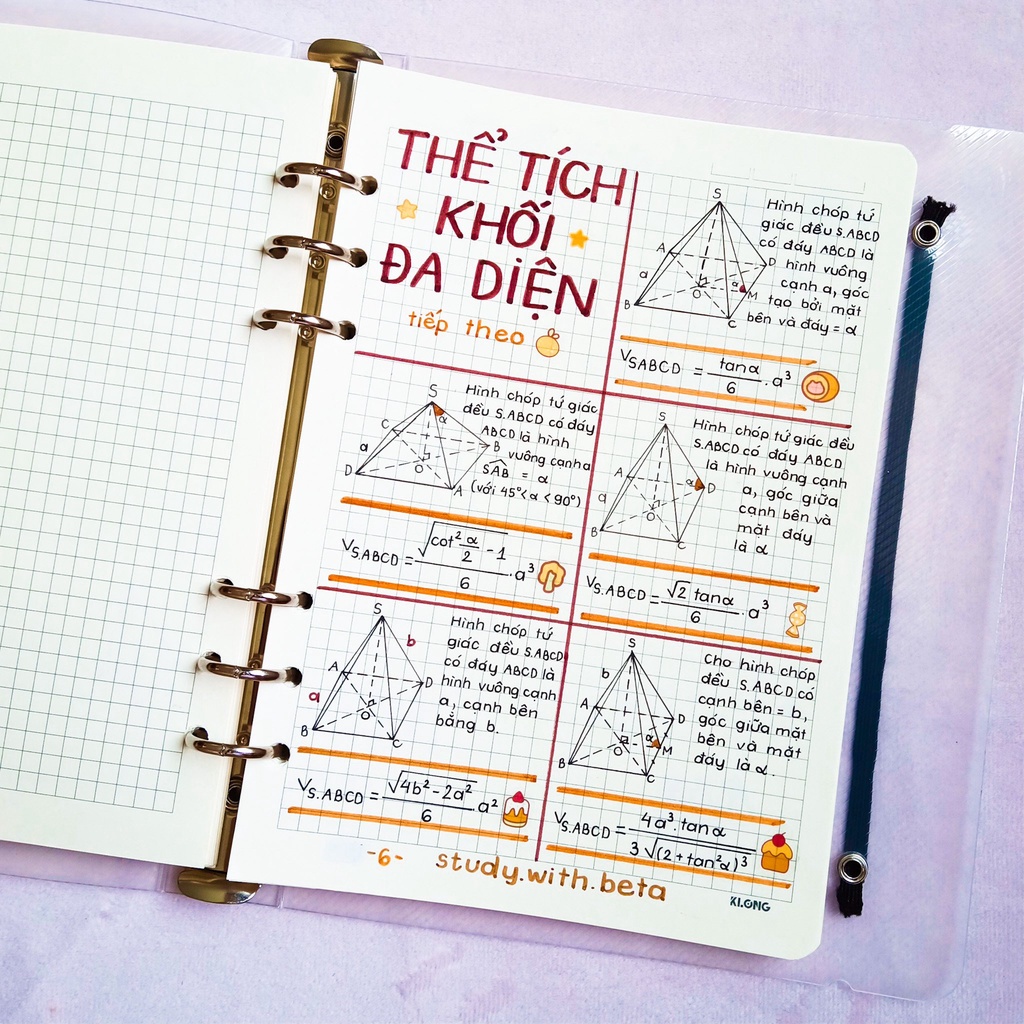 THỂ TÍCH
KHỐI
ĐA DIỆN
tiếp theo
S
A
a
B
O
C
D
M
α
Hình chóp tứ
giác đều S.ABCD
có đáy ABCD là
hình vuông
cạnh a, góc
tạo bởi mặt
bên và đáy = α
V_SABCD = tanα/6 . a³
S
α
C
a
D
O
B
A
Hình chóp tứ giác
đều S.ABCD có đáy
ABCD là hình
vuông cạnh a
SÂB = α
(với 45°< α < 90°)
V_S.ABCD = √(cot² α/2 - 1)/6 . a³
S
A
a
B
O
C
α
D
Hình chóp tứ giác đều
S.ABCD có đáy ABCD
là hình vuông cạnh
a, góc giữa
cạnh bên và
mặt đáy
là α
V_S.ABCD = √2 tanα/6 . a³
S
b
A
a
D
O
B
C
Hình chóp tứ
giác đều S.ABCD
có đáy ABCD là
hình vuông cạnh
a, cạnh bên
bằng b.
V_S.ABCD = √(4b² - 2a²)/6 . a²
S
b
A
D
α
O
M
B
C
Cho hình chóp
đều S.ABCD có
cạnh bên = b,
góc giữa mặt
bên và mặt
đáy là α.
V_S.ABCD = 4a³.tanα/3√(2+tan²α)³
-6- study.with.beta
KLONG